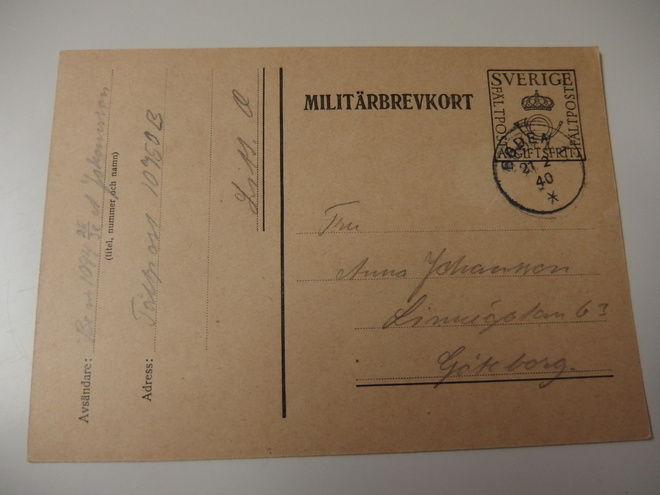 MILITÄRBREVKORT
SVERIGE
FÄLTPOST
FÄLTPOST
AVGIFTSFRITT
21 2
40
*
Fru
Anna Johansson
Linnégatan 63
Göteborg.
Avsändare: 1094 26 Johansson
(titel, nummer och namn)
Adress: Fältpost 10760 B
Litt. A